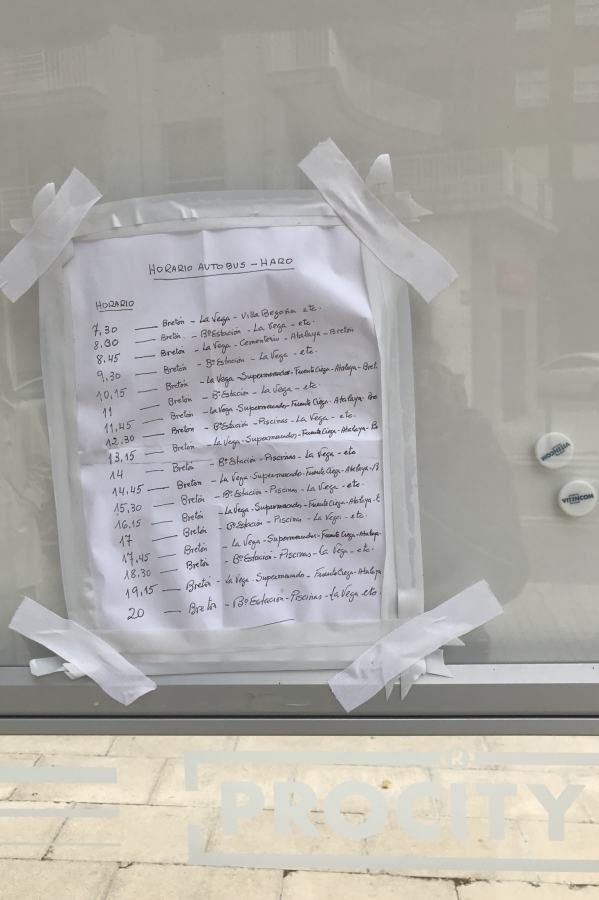 HORARIO AUTOBUS - HARO
HORARIO
7,30 — Bretón - La Vega - Villa Begoña etc.
8,00 — Bretón - Bº Estación - La Vega - etc.
8,45 — Bretón - La Vega - Cementerio - Atalaya - Bretón
9,30 — Bretón - Bº Estación - La Vega - etc.
10,15 — Bretón - La Vega - Supermercados - Fuente Ciega - Atalaya - Bret
11 — Bretón - Bº Estación - La Vega - etc.
11,45 — Bretón - La Vega - Supermercado - Fuente Ciega - Atalaya - Bre
12,30 — Bretón - Bº Estación - Piscinas - La Vega - etc.
13,15 — Bretón - La Vega - Supermercados - Fuente Ciega - Atalaya - B
14 — Bretón - Bº Estación - Piscinas - La Vega - etc
14,45 — Bretón - La Vega - Supermercado - Fuente Ciega - Atalaya - B
15,30 — Bretón - Bº Estación - Piscinas - La Vega - etc.
16,15 — Bretón - La Vega - Supermercado - Fuente Ciega - Atalaya -
17 — Bretón - Bº Estación - Piscinas - La Vega - etc.
17,45 — Bretón - La Vega - Supermercados - Fuente Ciega - Atalaya
18,30 — Bretón - Bº Estación - Piscinas - La Vega - etc.
19,15 — Bretón - La Vega - Supermercado - Fuente Ciega - Atalaya
20 — Bretón - Bº Estación - Piscinas - La Vega etc.
VITINCOM
PROCITY®